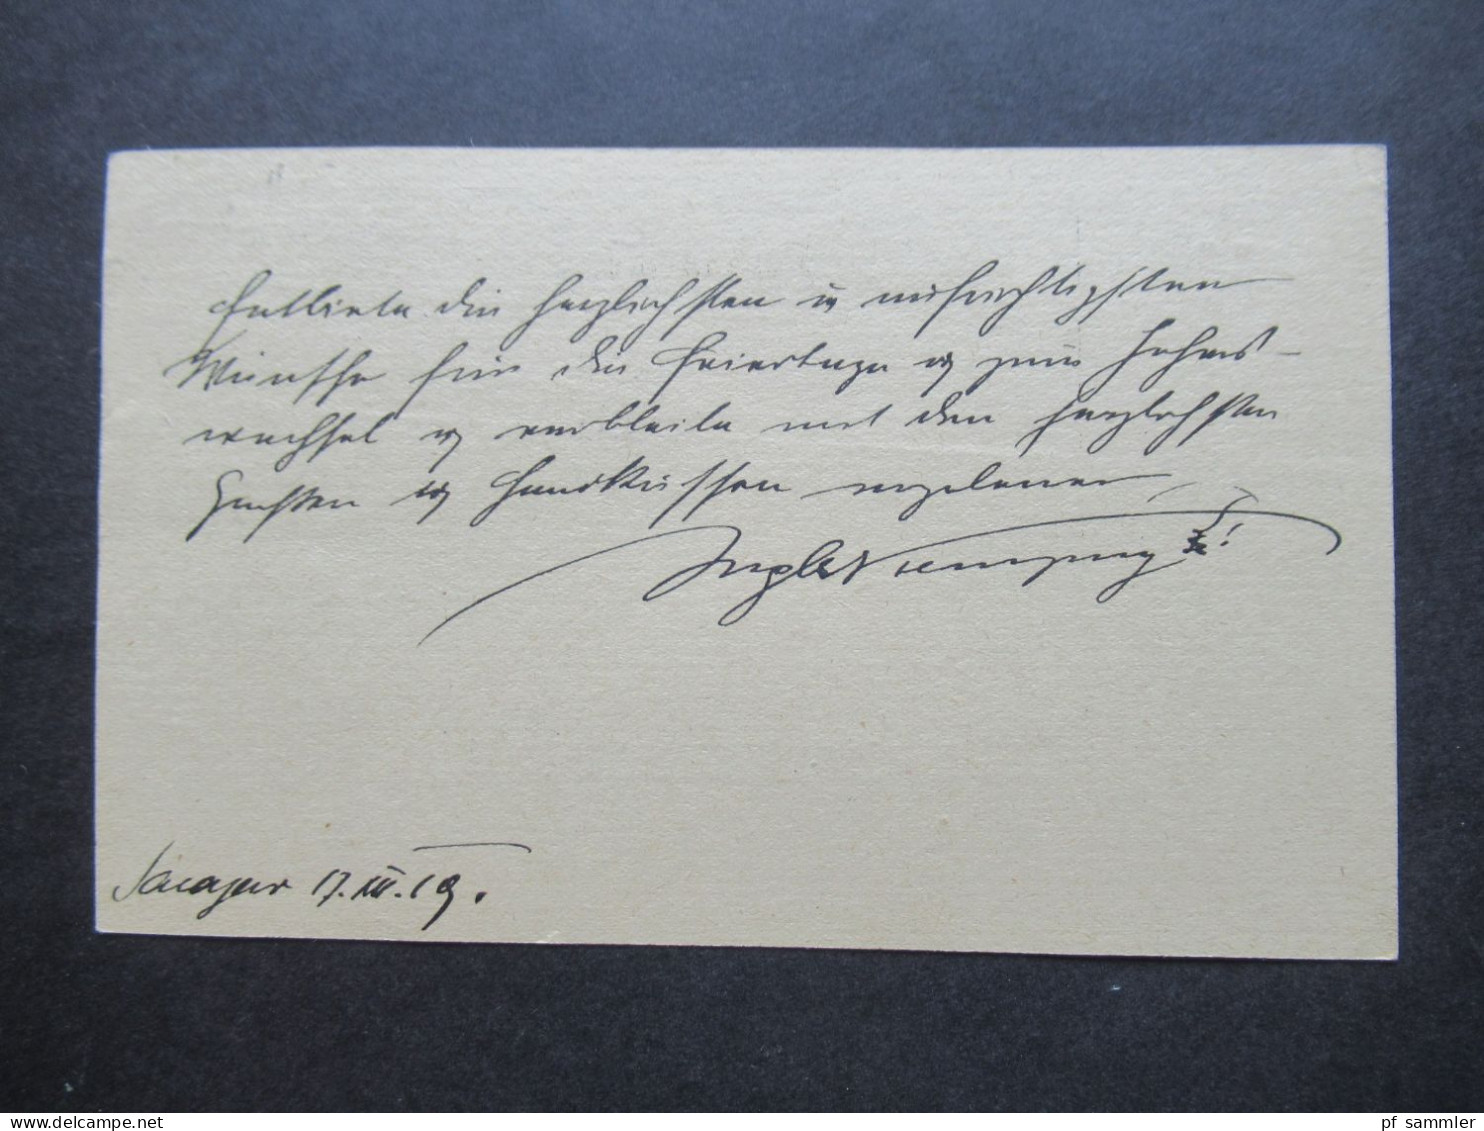 Entbiete die herzlichsten u aufrichtigsten
Wünsche für die Feiertage u zum Jahres-
wechsel u verbleibe mit den herzlichsten
Grüßen u Handküssen ergebener
17. XII. 19.
pf_sammler